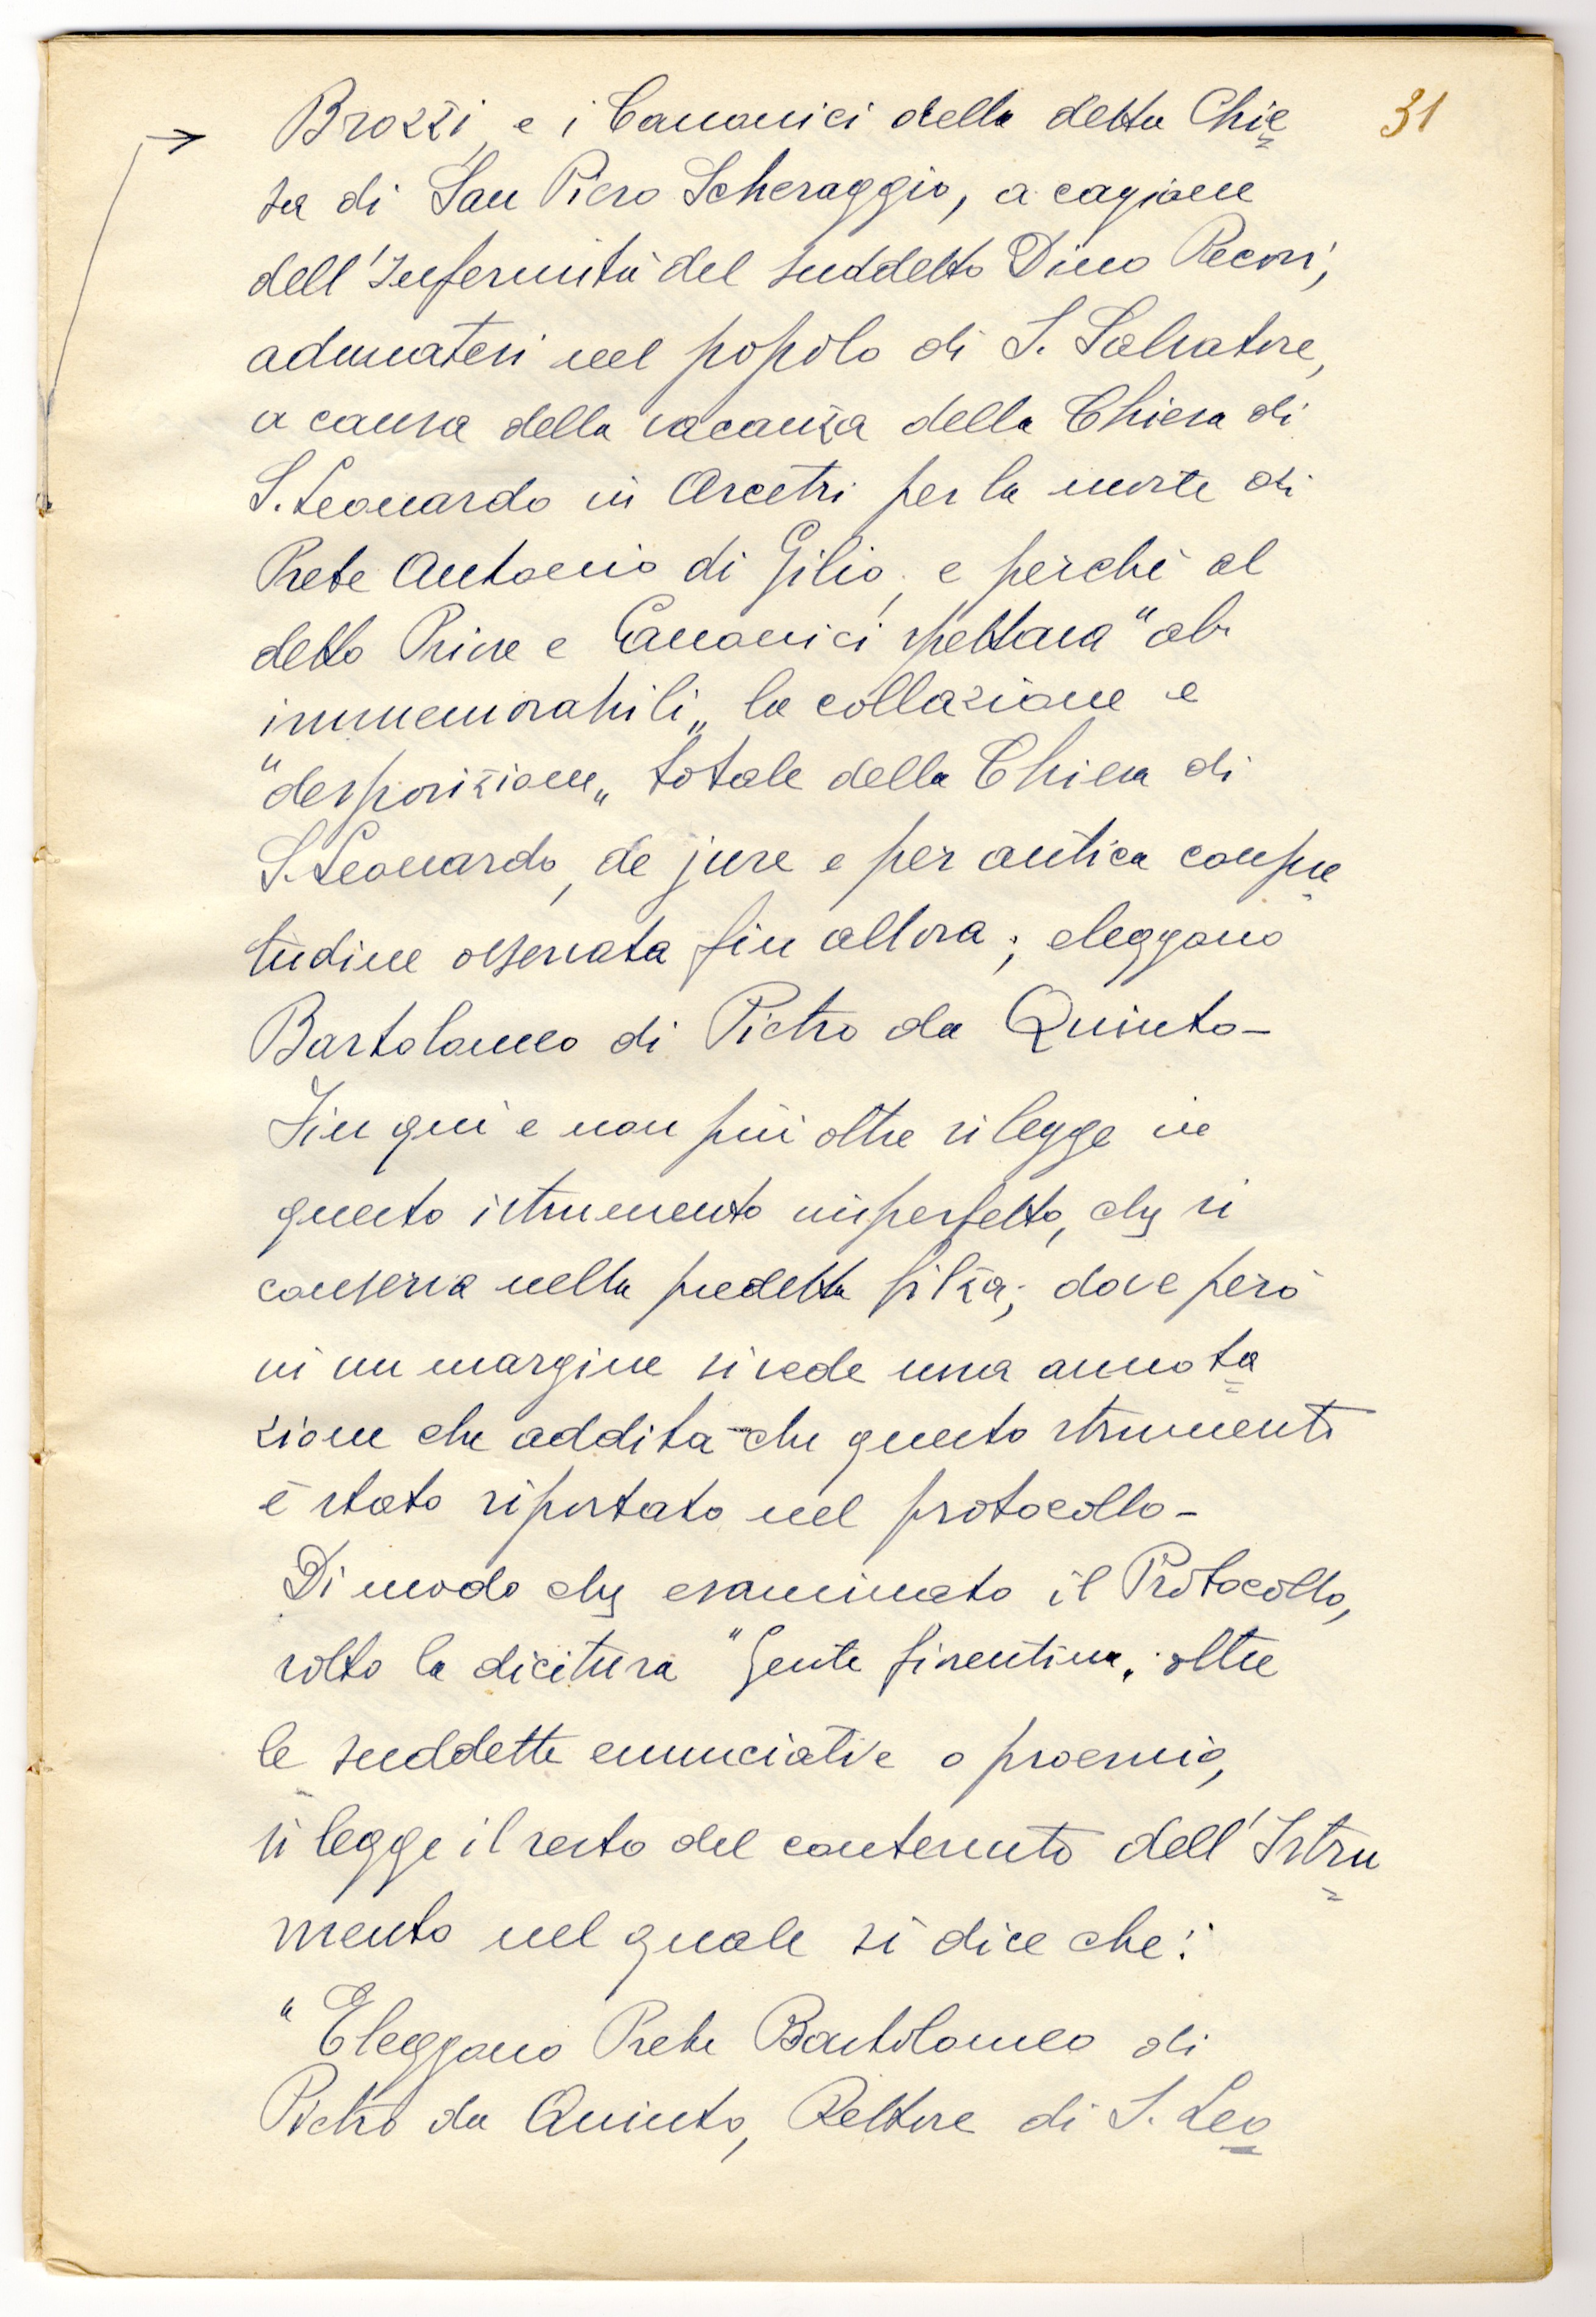 31
Brozzi, e i Canonici della detta Chie
sa di San Piero Scheraggio, a cagione
dell'Infermità del suddetto Dino Pecori,
adunatesi nel popolo di S. Salvatore,
a causa della vacanza della Chiesa di
S. Leonardo in Arcetri per la morte di
Prete Antonio di Gilio, e perchè al
detto Priore e Canonici spettava "ab
immemorabili„ la collazione e
"desposizione„ totale della Chiesa di
S. Leonardo, de jure e per antica consue
tudine osservata fin allora; eleggono
Bartolomeo di Pietro da Quinto-
Fin qui e non più oltre si legge in
questo istrumento imperfetto, che si
conserva nella predetta filza; dove però
in un margine si vede una annota
zione che addita che questo strumento
è stato riportato nel protocollo-
Di modo che esaminato il Protocollo,
sotto la dicitura "Gente fiorentina„ oltre
le suddette enunciative o proemio,
si legge il resto del contenuto dell'Istru
mento nel quale si dice che:
"Eleggono Prete Bartolomeo di
Pietro da Quinto, Rettore di S. Leo